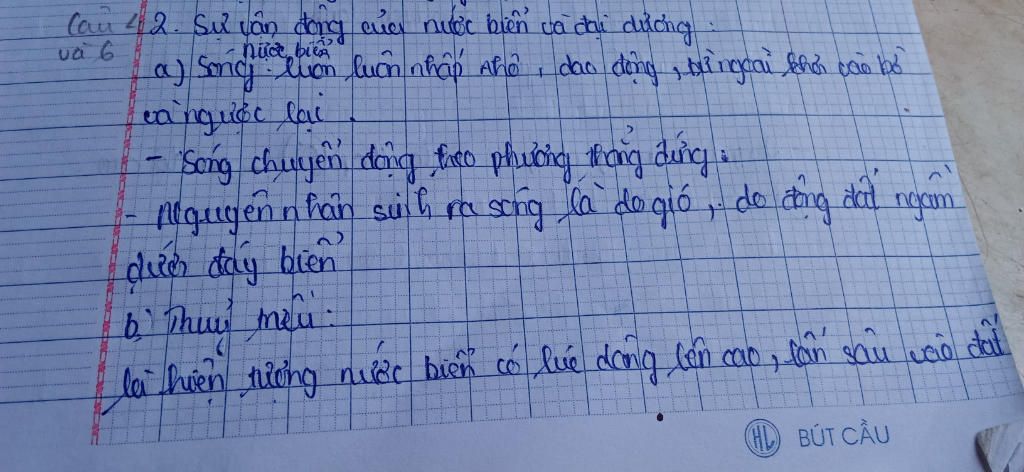 Câu 4
và 6
2. Sự vận động của nước biển và đại dương.
nước biển
a) Sóng: luôn luôn nhấp nhô, dao động, từ ngoài khơi vào bờ
và ngược lại.
- Sóng chuyển động theo phương thẳng đứng.
- Nguyên nhân sinh ra sóng là do gió, do động đất ngầm
dưới đáy biển
b) Thuỷ triều:
là hiện tượng nước biển có lúc dâng lên cao, lấn sâu vào đất
HL BÚT CẦU